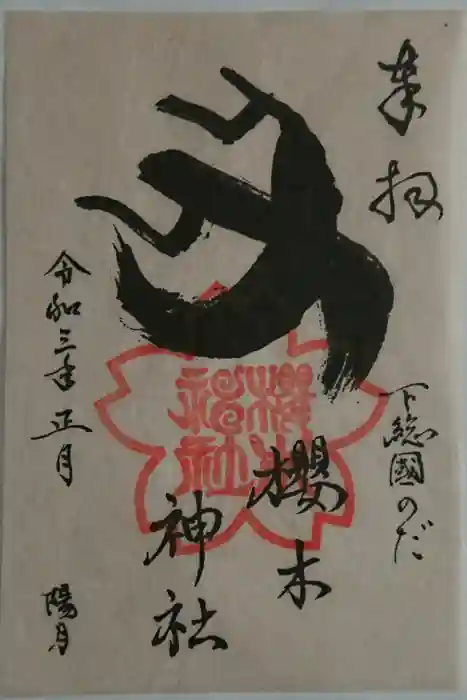 奉拝
下総國のだ
丑
櫻木
神社
令和三年正月
陽月
櫻木
神社